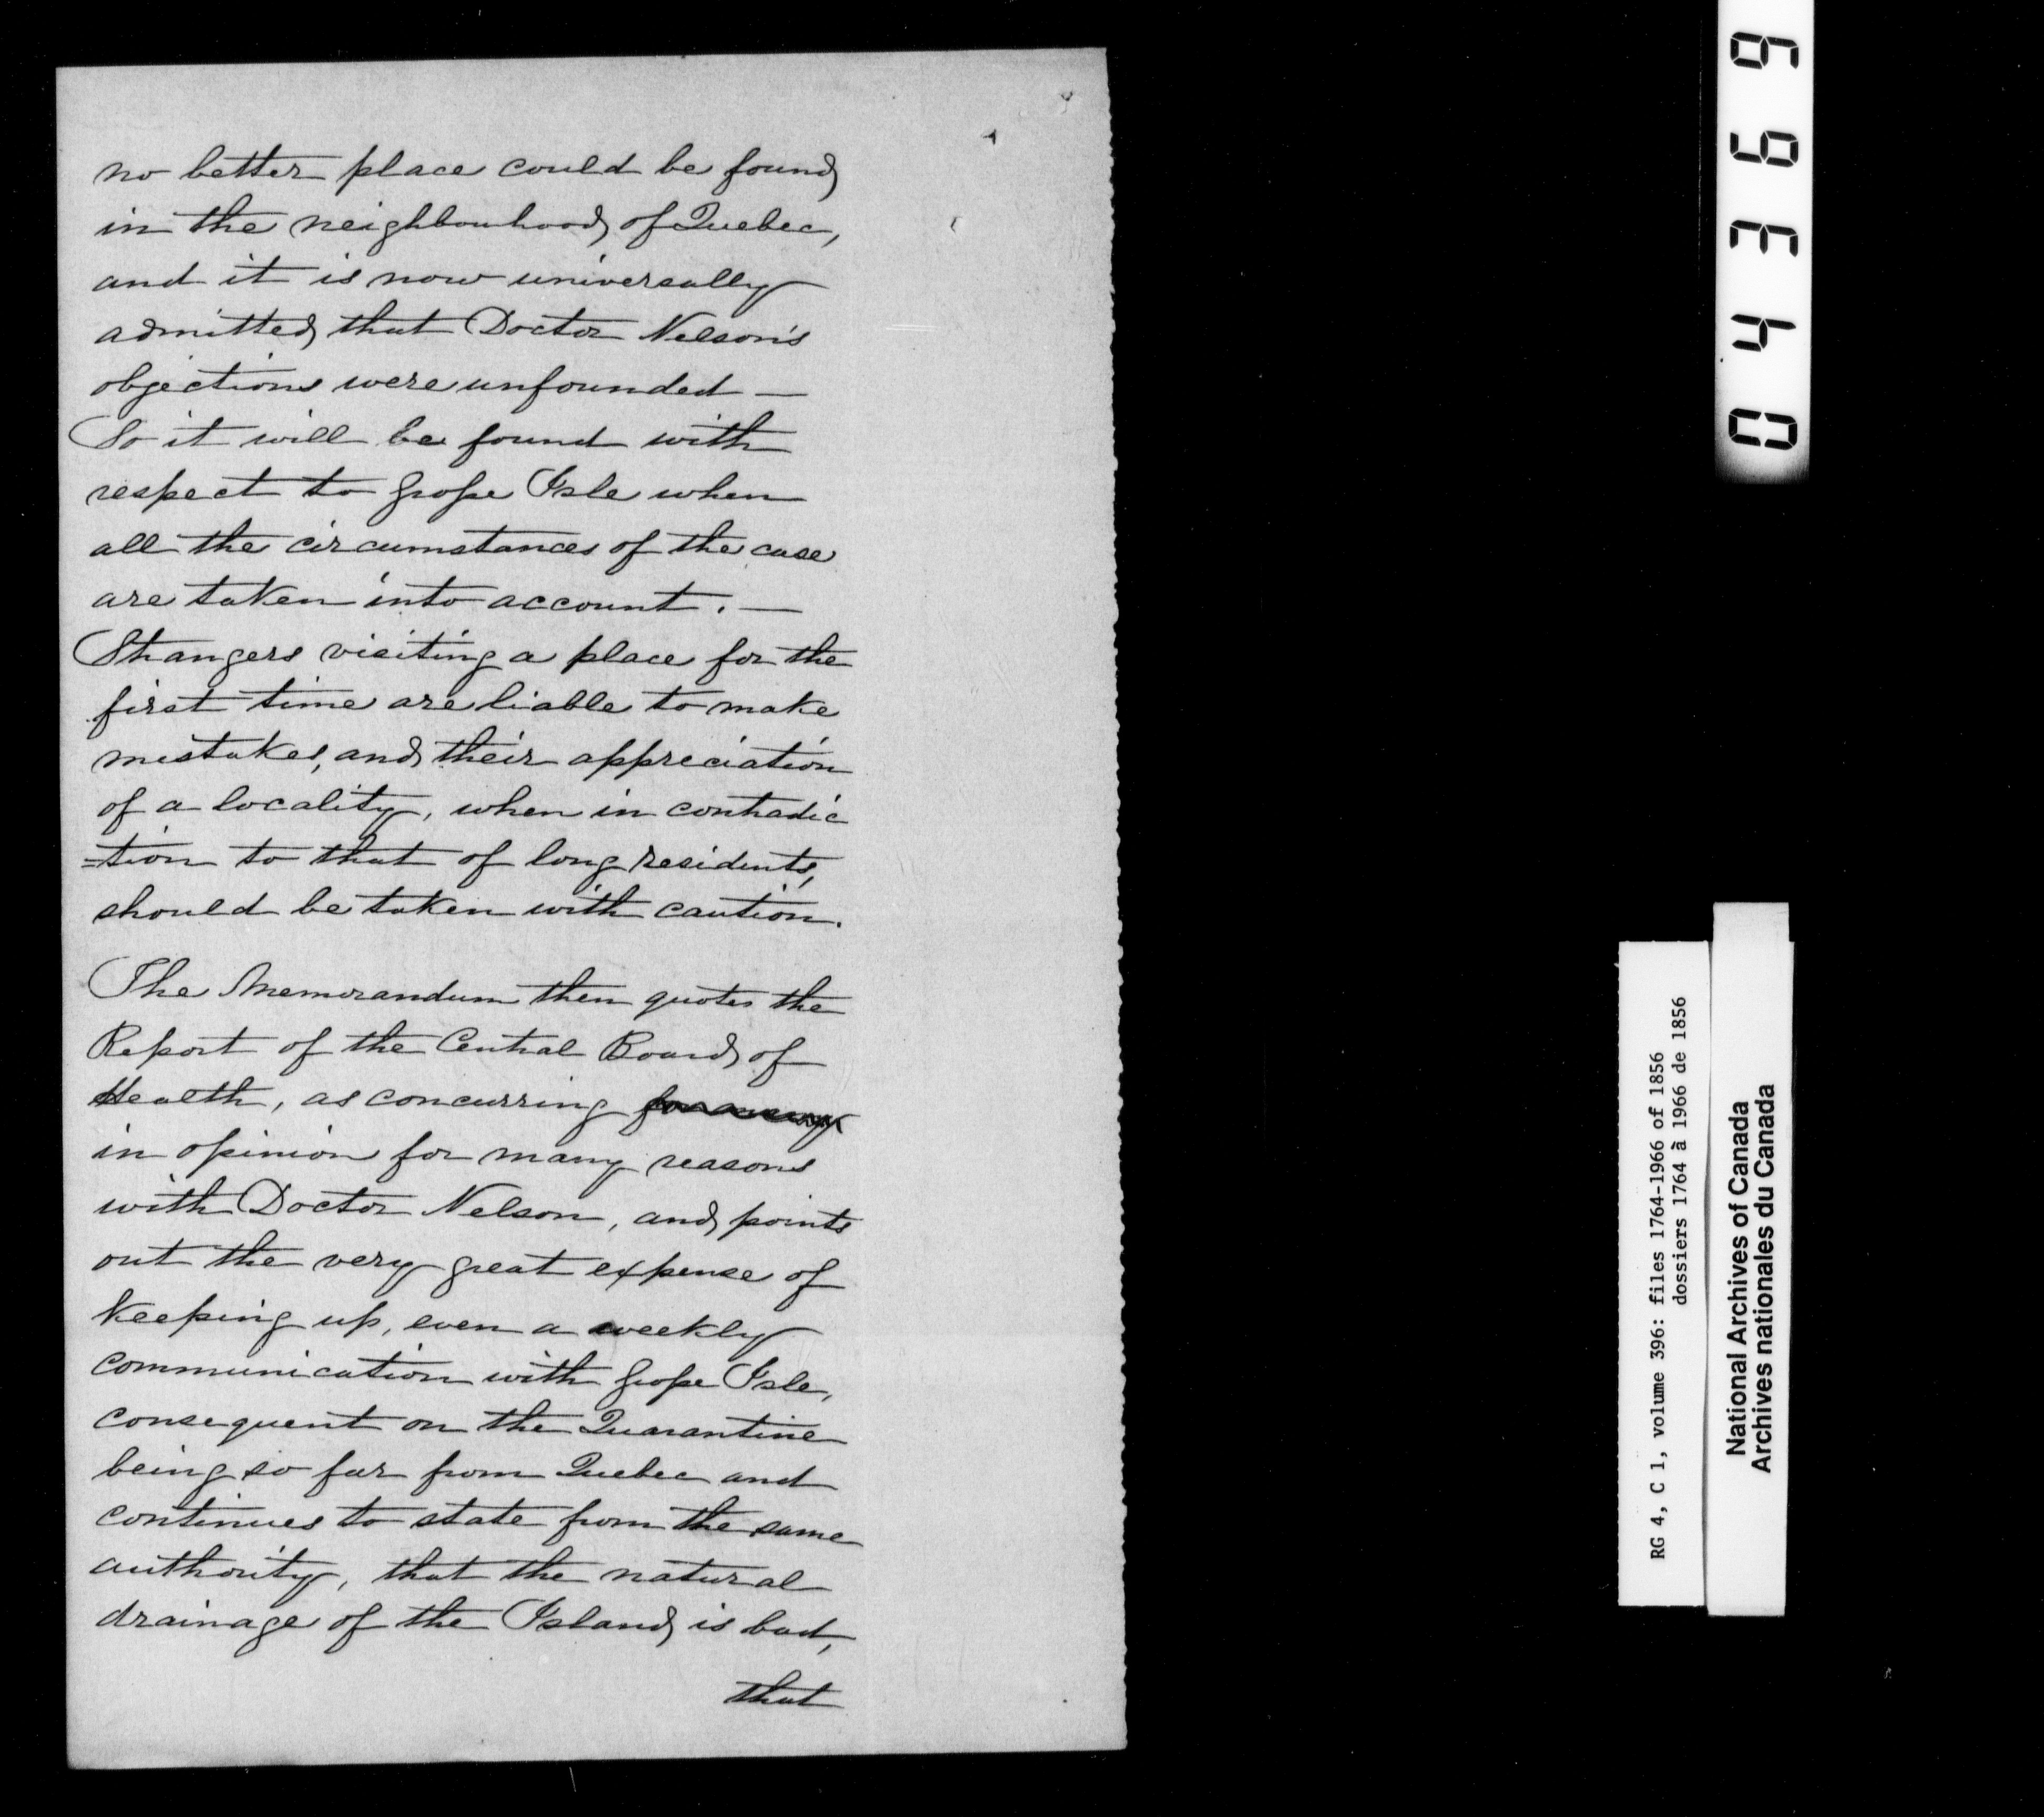 no better place could be found
in the neighbourhood of Quebec,
and it is now universally
admitted that Doctor Nelson's
objections were unfounded —
So it will be found with
respect to Grosse Isle when
all the circumstances of the case
are taken into account. —
Strangers visiting a place for the
first time are liable to make
mistakes, and their appreciation
of a locality, when in contradic
=tion to that of long residents,
should be taken with caution.
The Memorandum then quotes the
Report of the Central Board of
Health, as concurring for many
in opinion for many reasons
with Doctor Nelson, and points
out the very great expense of
keeping up, even a weekly
communication with Grosse Isle,
consequent on the Quarantine
being so far from Quebec and
continues to state from the same
authority, that the natural
drainage of the Island is bad,
that
04369
RG 4, C 1, volume 396: files 1764-1966 of 1856
dossiers 1764 à 1966 de 1856
National Archives of Canada
Archives nationales du Canada